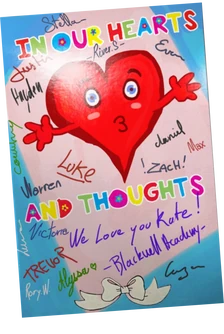 Stella
IN OUR HEARTS
-River.S-
Evan
Justin
Hayden
Courtney
Daniel
Max
Luke
!ZACH!
Warren
AND THOUGHTS
Victoria
We Love you Kate!
-Blackwell Academy-
TREVOR
Alyssa
Rory.W